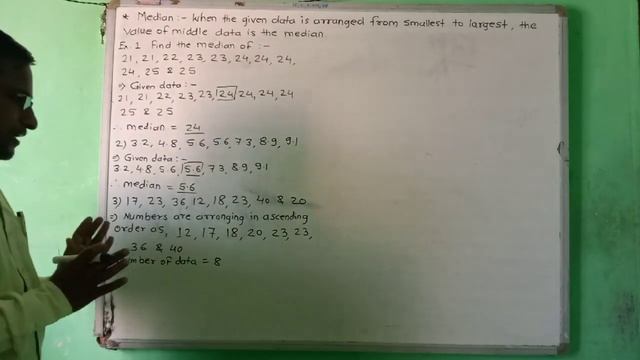 * Median :- When the given data is arranged from smallest to largest, the
value of middle data is the median.
Ex. 1 Find the median of :-
21, 21, 22, 23, 23, 24, 24, 24,
24, 25 & 25
⇒ Given data :-
21, 21, 22, 23, 23, 24, 24, 24, 24
25 & 25
∴ median = 24
2) 3.2, 4.8, 5.6, 5.6, 7.3, 8.9, 9.1
⇒ Given data :-
3.2, 4.8, 5.6, 5.6, 7.3, 8.9, 9.1
∴ median = 5.6
3) 17, 23, 36, 12, 18, 23, 40 & 20
⇒ Numbers are arranging in ascending
order as, 12, 17, 18, 20, 23, 23,
36 & 40
of data = 8